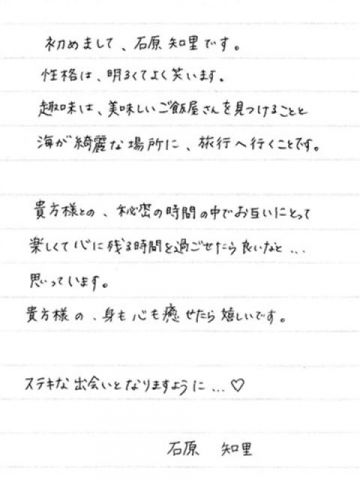 初めまして、石原知里です。
性格は、明るくてよく笑います。
趣味は、美味しいご飯屋さんを見つけることと
海が綺麗な場所に、旅行へ行くことです。
貴方様との、秘密の時間の中でお互いにとって
楽しくて心に残る時間を過ごせたら良いなと...
思っています。
貴方様の、身も心も癒せたら嬉しいです。
ステキな出会いとなりますように...♡
石原 知里